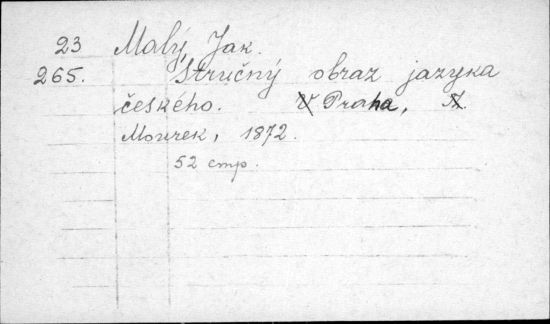 23 Malý, Jak.
265. Stručný obraz jazyka
českého. V Praha, A.
Mourek, 1872.
52 стр.